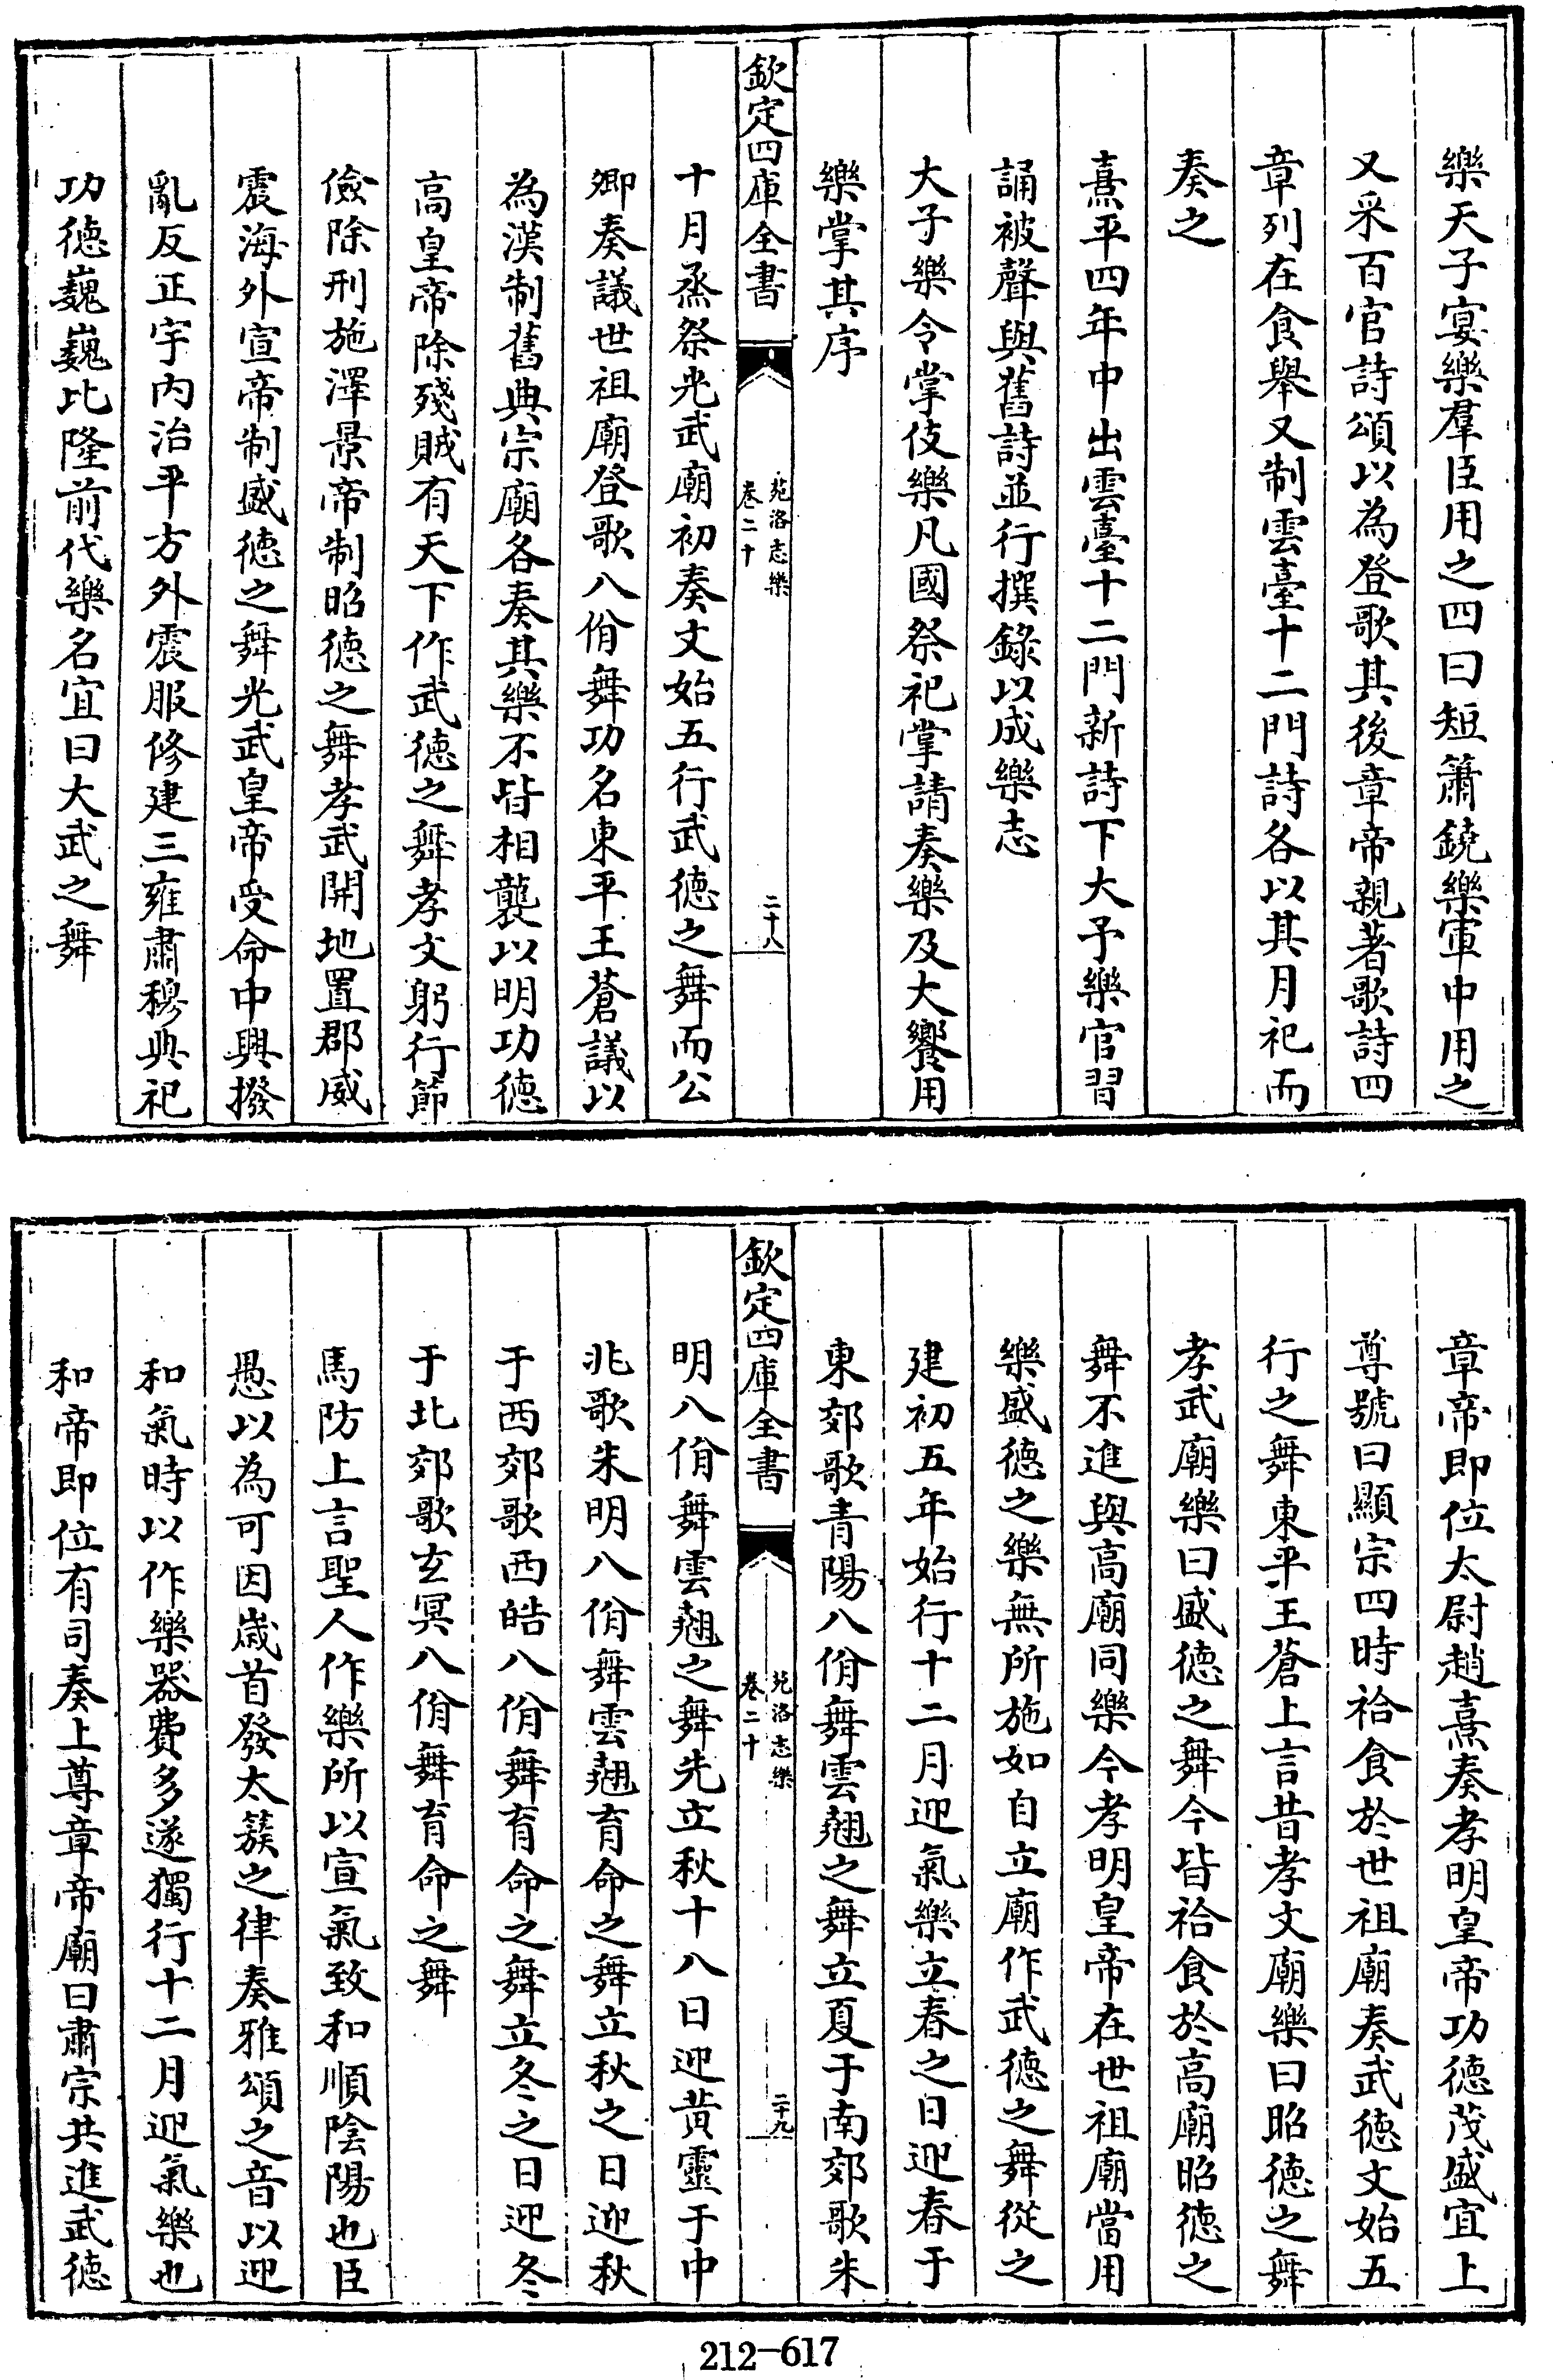 樂天子宴樂羣臣用之四曰短簫鐃樂軍中用之
又采百官詩頌以為登歌其後章帝親著歌詩四
章列在食舉又制雲臺十二門詩各以其月祀而
奏之
熹平四年中出雲臺十二門新詩下大予樂官習
誦被聲與舊詩並行撰錄以成樂志
大子樂令掌伎樂凡國祭祀掌請奏樂及大饗用
樂掌其序
欽定四庫全書
苑洛志樂
卷二十
二十八
十月烝祭光武廟初奏文始五行武德之舞而公
卿奏議世祖廟登歌八佾舞功名東平王蒼議以
為漢制舊典宗廟各奏其樂不皆相襲以明功德
高皇帝除殘賊有天下作武德之舞孝文躬行節
儉除刑施澤景帝制昭德之舞孝武開地置郡威
震海外宣帝制盛德之舞光武皇帝受命中興撥
亂反正宇內治平方外震服修建三雍肅穆典祀
功德巍巍比隆前代樂名宜曰大武之舞
章帝即位太尉趙熹奏孝明皇帝功德茂盛宜上
尊號曰顯宗四時祫食於世祖廟奏武德文始五
行之舞東平王蒼上言昔孝文廟樂曰昭德之舞
孝武廟樂曰盛德之舞今皆祫食於高廟昭德之
舞不進與高廟同樂今孝明皇帝在世祖廟當用
樂盛德之樂無所施如自立廟作武德之舞從之
建初五年始行十二月迎氣樂立春之日迎春于
東郊歌青陽八佾舞雲翹之舞立夏于南郊歌朱
欽定四庫全書
苑洛志樂
卷二十
二十九
明八佾舞雲翹之舞先立秋十八日迎黃靈于中
兆歌朱明八佾舞雲翹育命之舞立秋之日迎秋
于西郊歌西皓八佾舞育命之舞立冬之日迎冬
于北郊歌玄冥八佾舞育命之舞
馬防上言聖人作樂所以宣氣致和順陰陽也臣
愚以為可因歲首發太簇之律奏雅頌之音以迎
和氣時以作樂器費多遂獨行十二月迎氣樂也
和帝即位有司奏上尊章帝廟曰肅宗共進武德
212-617